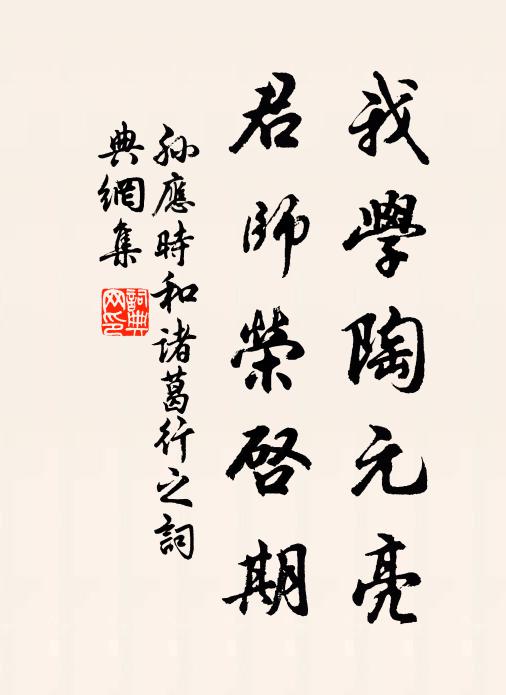 我學陶元亮
君師榮啓期
孫應時和諸葛行之詞
典網集
詞典
网印